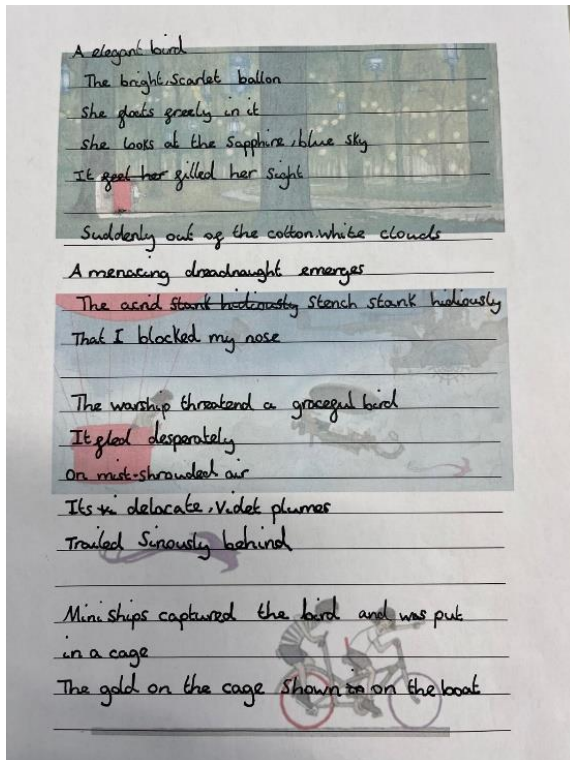 A elegant bird
The bright, Scarlet ballon
She floats freely in it
She looks at the Sapphire, blue sky
It feel her filled her Sight
Suddenly out of the cotton white clouds
A menacing dreadnaught emerges
The acrid stank hidiously stench stank hidiously
That I blocked my nose
The warship threatend a graceful bird
It fled desperately
On mist-shrouded air
Its delacate, Violet plumes
Trailed Sinously behind
Mini ships captured the bird and was put
in a cage
The gold on the cage Shown on the boat